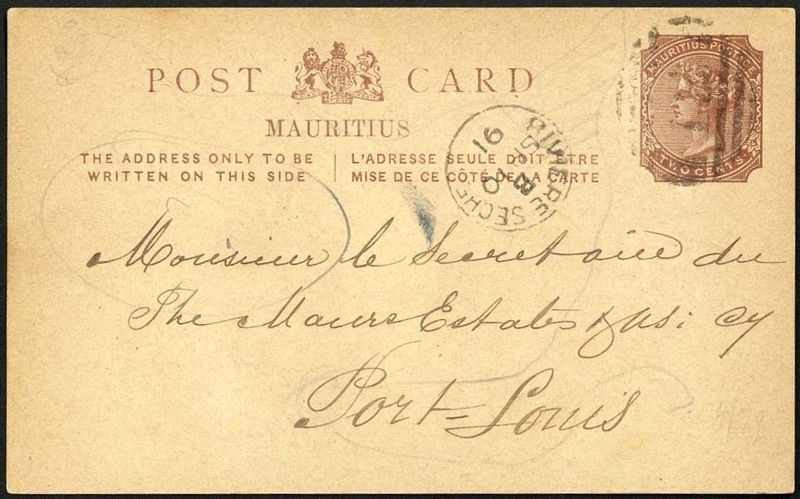 POST CARD
MAURITIUS
THE ADDRESS ONLY TO BE WRITTEN ON THIS SIDE
L'ADRESSE SEULE DOIT ÊTRE MISE DE CE CÔTÉ DE LA CARTE
MAURITIUS POSTAGE
TWO CENTS
RIVIERE SECHE
16
91
B
Monsieur le Secretaire du
The Maurs Estates & As: Cy
Port-Louis